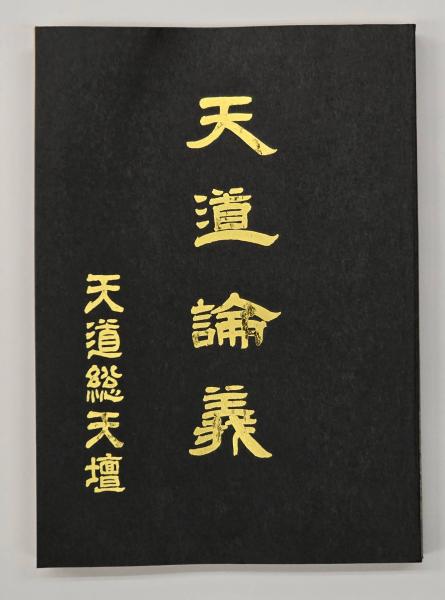 天道論義
天道総天壇